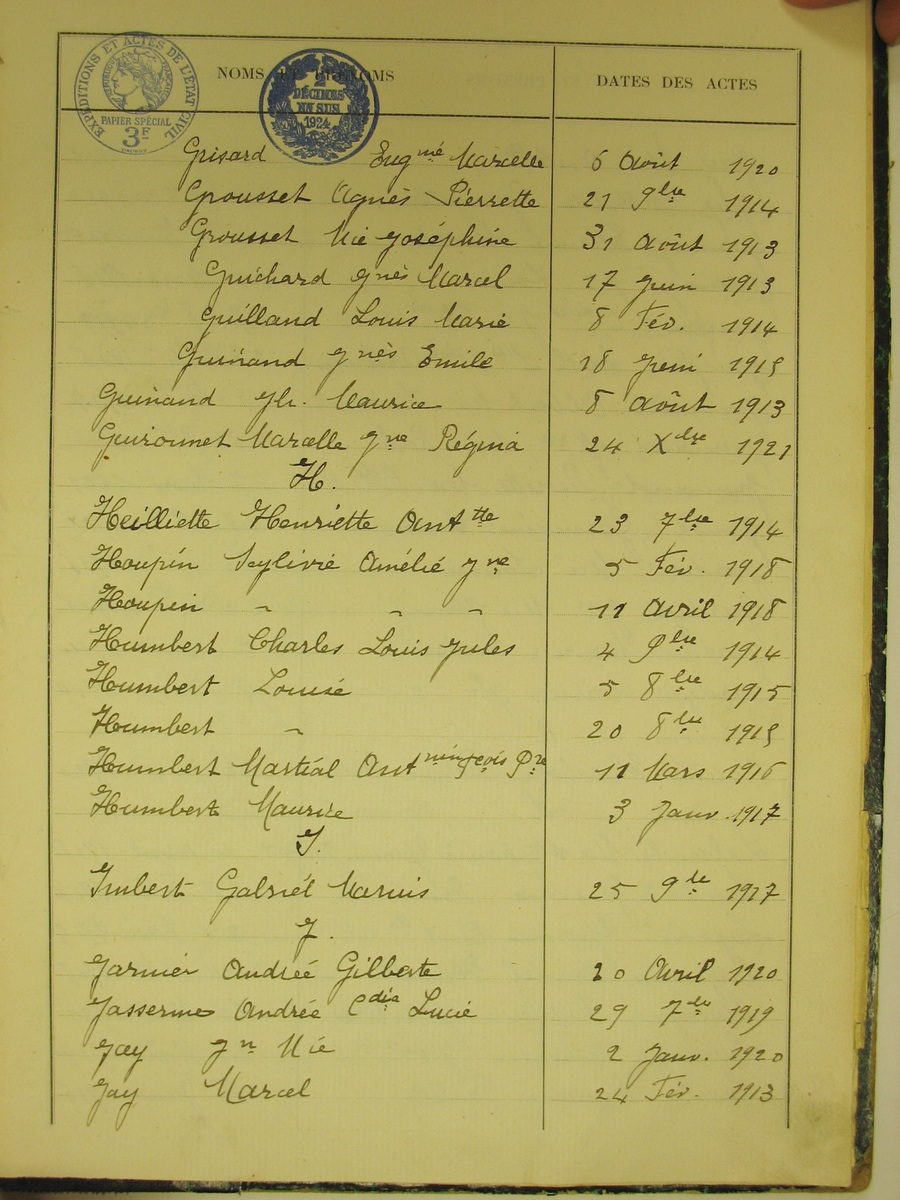 EXPÉDITIONS ET ACTES DE L'ÉTAT CIVIL
RÉPUBLIQUE FRANÇAISE
PAPIER SPÉCIAL
3F
2 DÉCIMES EN SUS 1924
NOMS ET PRÉNOMS DATES DES ACTES
Grisard Eugnié Marcelle 6 Août 1920
Grousset Agnès Pierrette 21 9bre 1914
Grousset Mie Joséphine 31 Août 1913
Guichard Jnès Marcel 17 Juin 1913
Guilland Louis Marie 8 Fév. 1914
Guinand Jnès Emile 18 Juin 1915
Guinand Jh. Maurice 8 Août 1913
Guironnet Marcelle Jne Régina 24 Xbre 1921
H.
Heilliette Henriette Anttte 23 7bre 1914
Houpin Sylivie Amélie Jne 5 Fév. 1918
Houpin " " " 11 Avril 1918
Humbert Charles Louis Jules 4 9bre 1914
Humbert Louise 5 8bre 1915
Humbert " 20 8bre 1915
Humbert Martial Ant Pre 11 Mars 1916
Humbert Maurice 3 Janv. 1917
I.
Imbert Gabriel Marius 25 9bre 1917
J.
Jarnier Andrée Gilberte 20 Avril 1920
Jasserme Andrée Cdia Lucie 29 7bre 1919
Jay Jn Mie 2 Janv. 1920
Jay Marcel 24 Fév. 1913